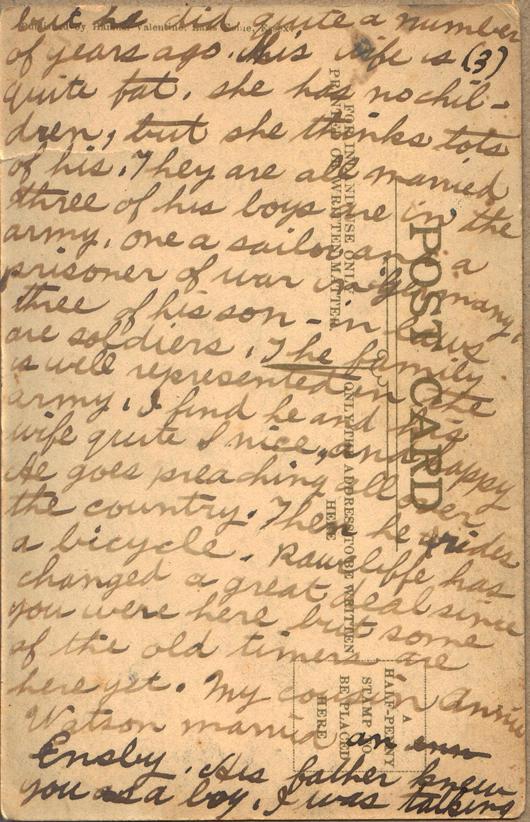 but he did quite a number
of years ago. His wife is (3)
quite fat, she has no chil-
dren, but she thinks lots
of his. They are all married
three of his boys are in the
army, one a sailor and a
prisoner of war in Germany,
three of his son-in laws
are soldiers. The family
is well represented in the
army. I find he and his
wife quite nice, and happy
He goes preaching all over
the country. Then he rides
a bicycle. Rawcliffe has
changed a great deal since
you were here but some
of the old timers are
here yet. My cousin Annie
Watson married an
Ensby. His father knew
you as a boy. I was talking
POST CARD
FOR INLAND USE ONLY
PRINTED OR WRITTEN MATTER
ONLY THE ADDRESS TO BE WRITTEN
HERE
A
HALF-PENNY
STAMP TO
BE PLACED
HERE